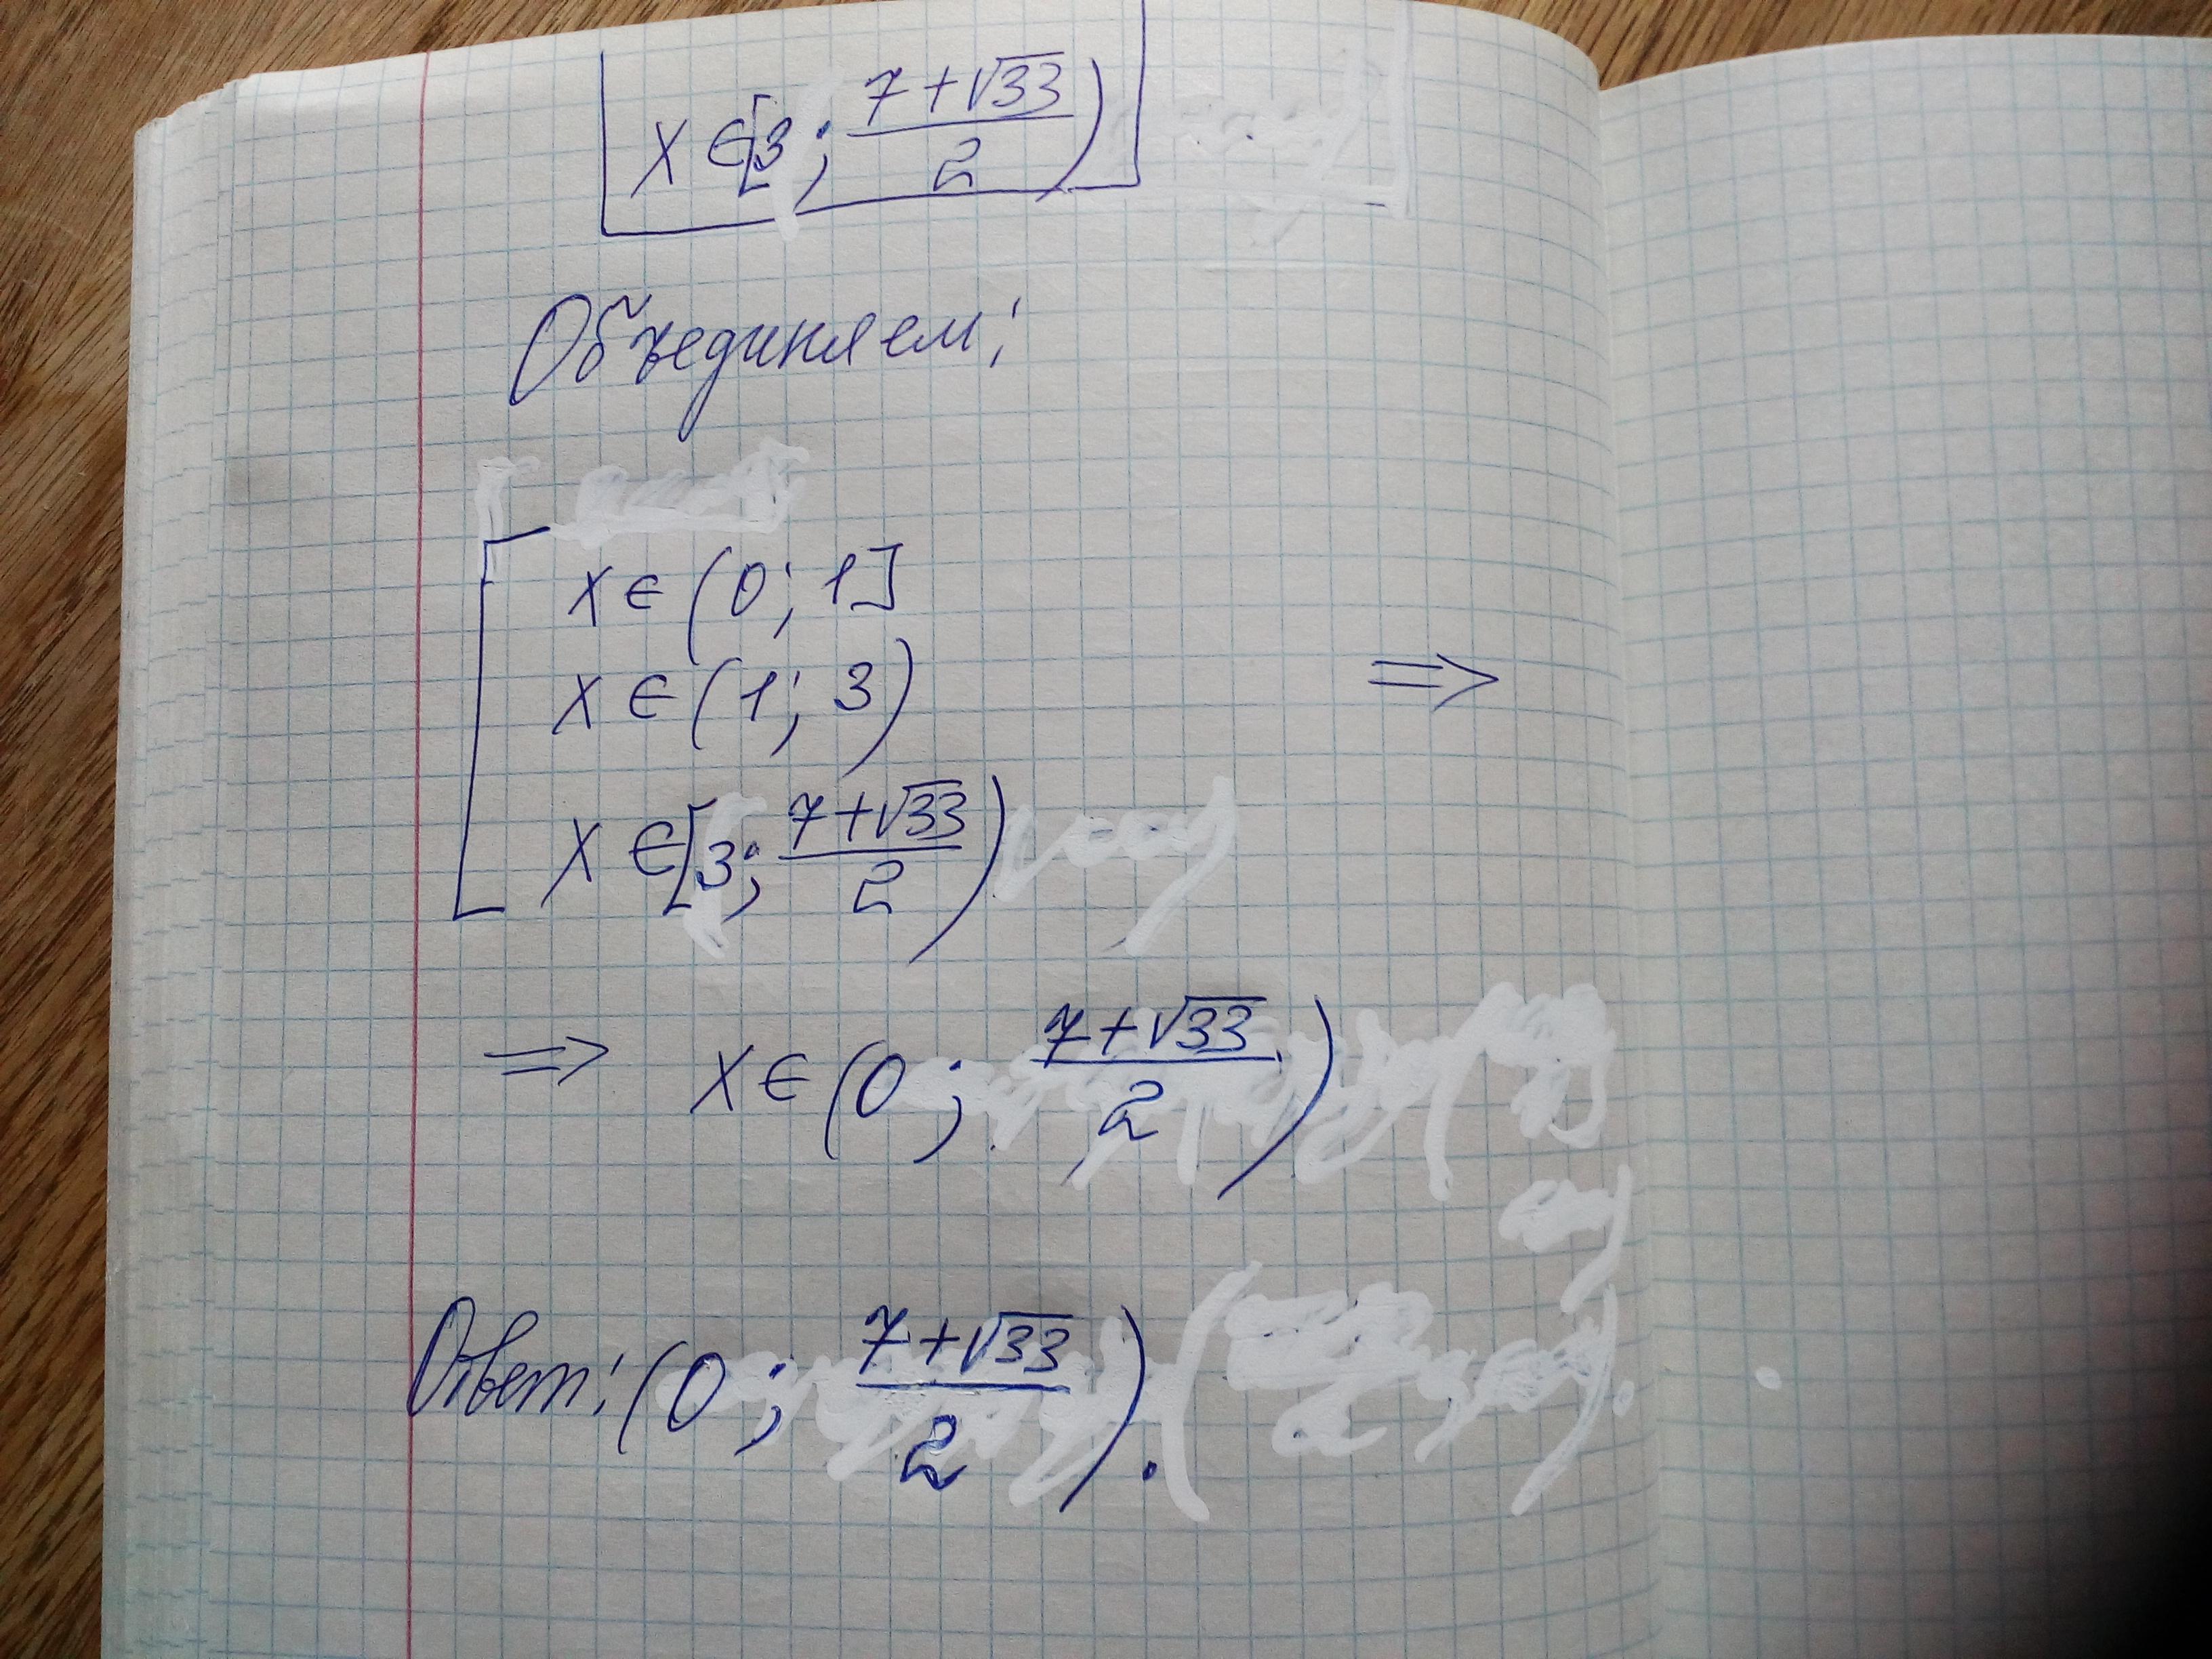 x ∈ [3; (7+√33)/2)
Объединяем:
x ∈ (0; 1]
x ∈ (1; 3) ⇒
x ∈ [3; (7+√33)/2)
⇒ x ∈ (0; (7+√33)/2)
Ответ: (0; (7+√33)/2).